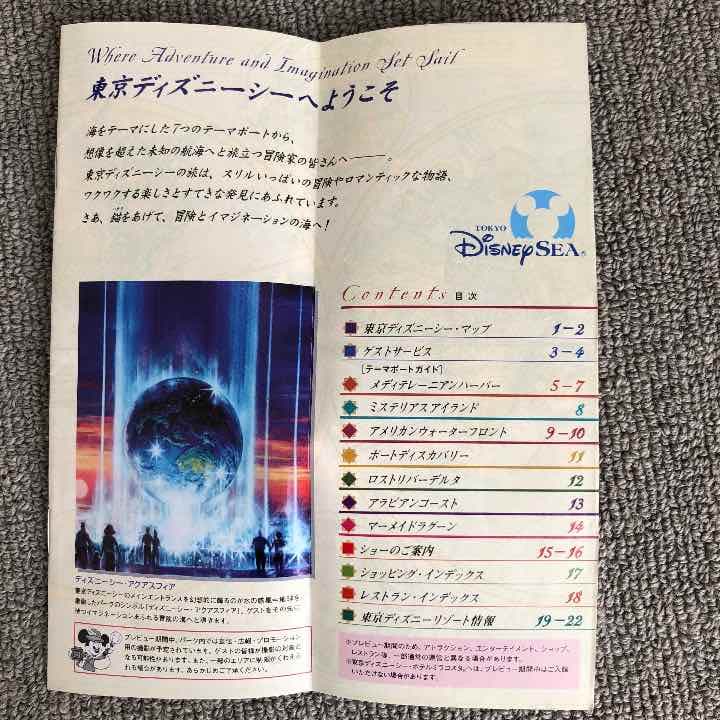 Where Adventure and Imagination Set Sail
東京ディズニーシーへようこそ
海をテーマにした7つのテーマポートから、
想像を超えた未知の航海へと旅立つ冒険家の皆さんへ――。
東京ディズニーシーの旅は、スリルいっぱいの冒険やロマンティックな物語、
ワクワクする楽しさとすてきな発見にあふれています。
さあ、錨をあげて、冒険とイマジネーションの海へ!
TOKYO
DISNEY SEA®
Contents 目次
東京ディズニーシー・マップ 1-2
ゲストサービス 3-4
[テーマポートガイド]
メディテレーニアンハーバー 5-7
ミステリアスアイランド 8
アメリカンウォーターフロント 9-10
ポートディスカバリー 11
ロストリバーデルタ 12
アラビアンコースト 13
マーメイドラグーン 14
ショーのご案内 15-16
ショッピング・インデックス 17
レストラン・インデックス 18
東京ディズニーリゾート情報 19-22
ディズニーシー・アクアスフィア
東京ディズニーシーのメインエントランスを幻想的に飾るのが水の惑星
パークのシンボル「ディズニーシー・アクアスフィア」。ゲストを
イマジネーションあふれる冒険の海へと導きます。
プレビュー期間中、パーク内では宣伝・広報・プロモーション
用の撮影が予定されています。ゲストの皆様が撮影の対象に
なる可能性があります。また、一部のエリアに制限がくわえら
れる場合があります。あらかじめご了承ください。
※プレビュー期間のため、アトラクション、エンターテイメント、ショップ、
レストラン等、一部通常の運営と異なる場合があります。
※東京ディズニーシー・ホテルミラコスタへは、プレビュー期間中はご入館
いただけない場合があります。